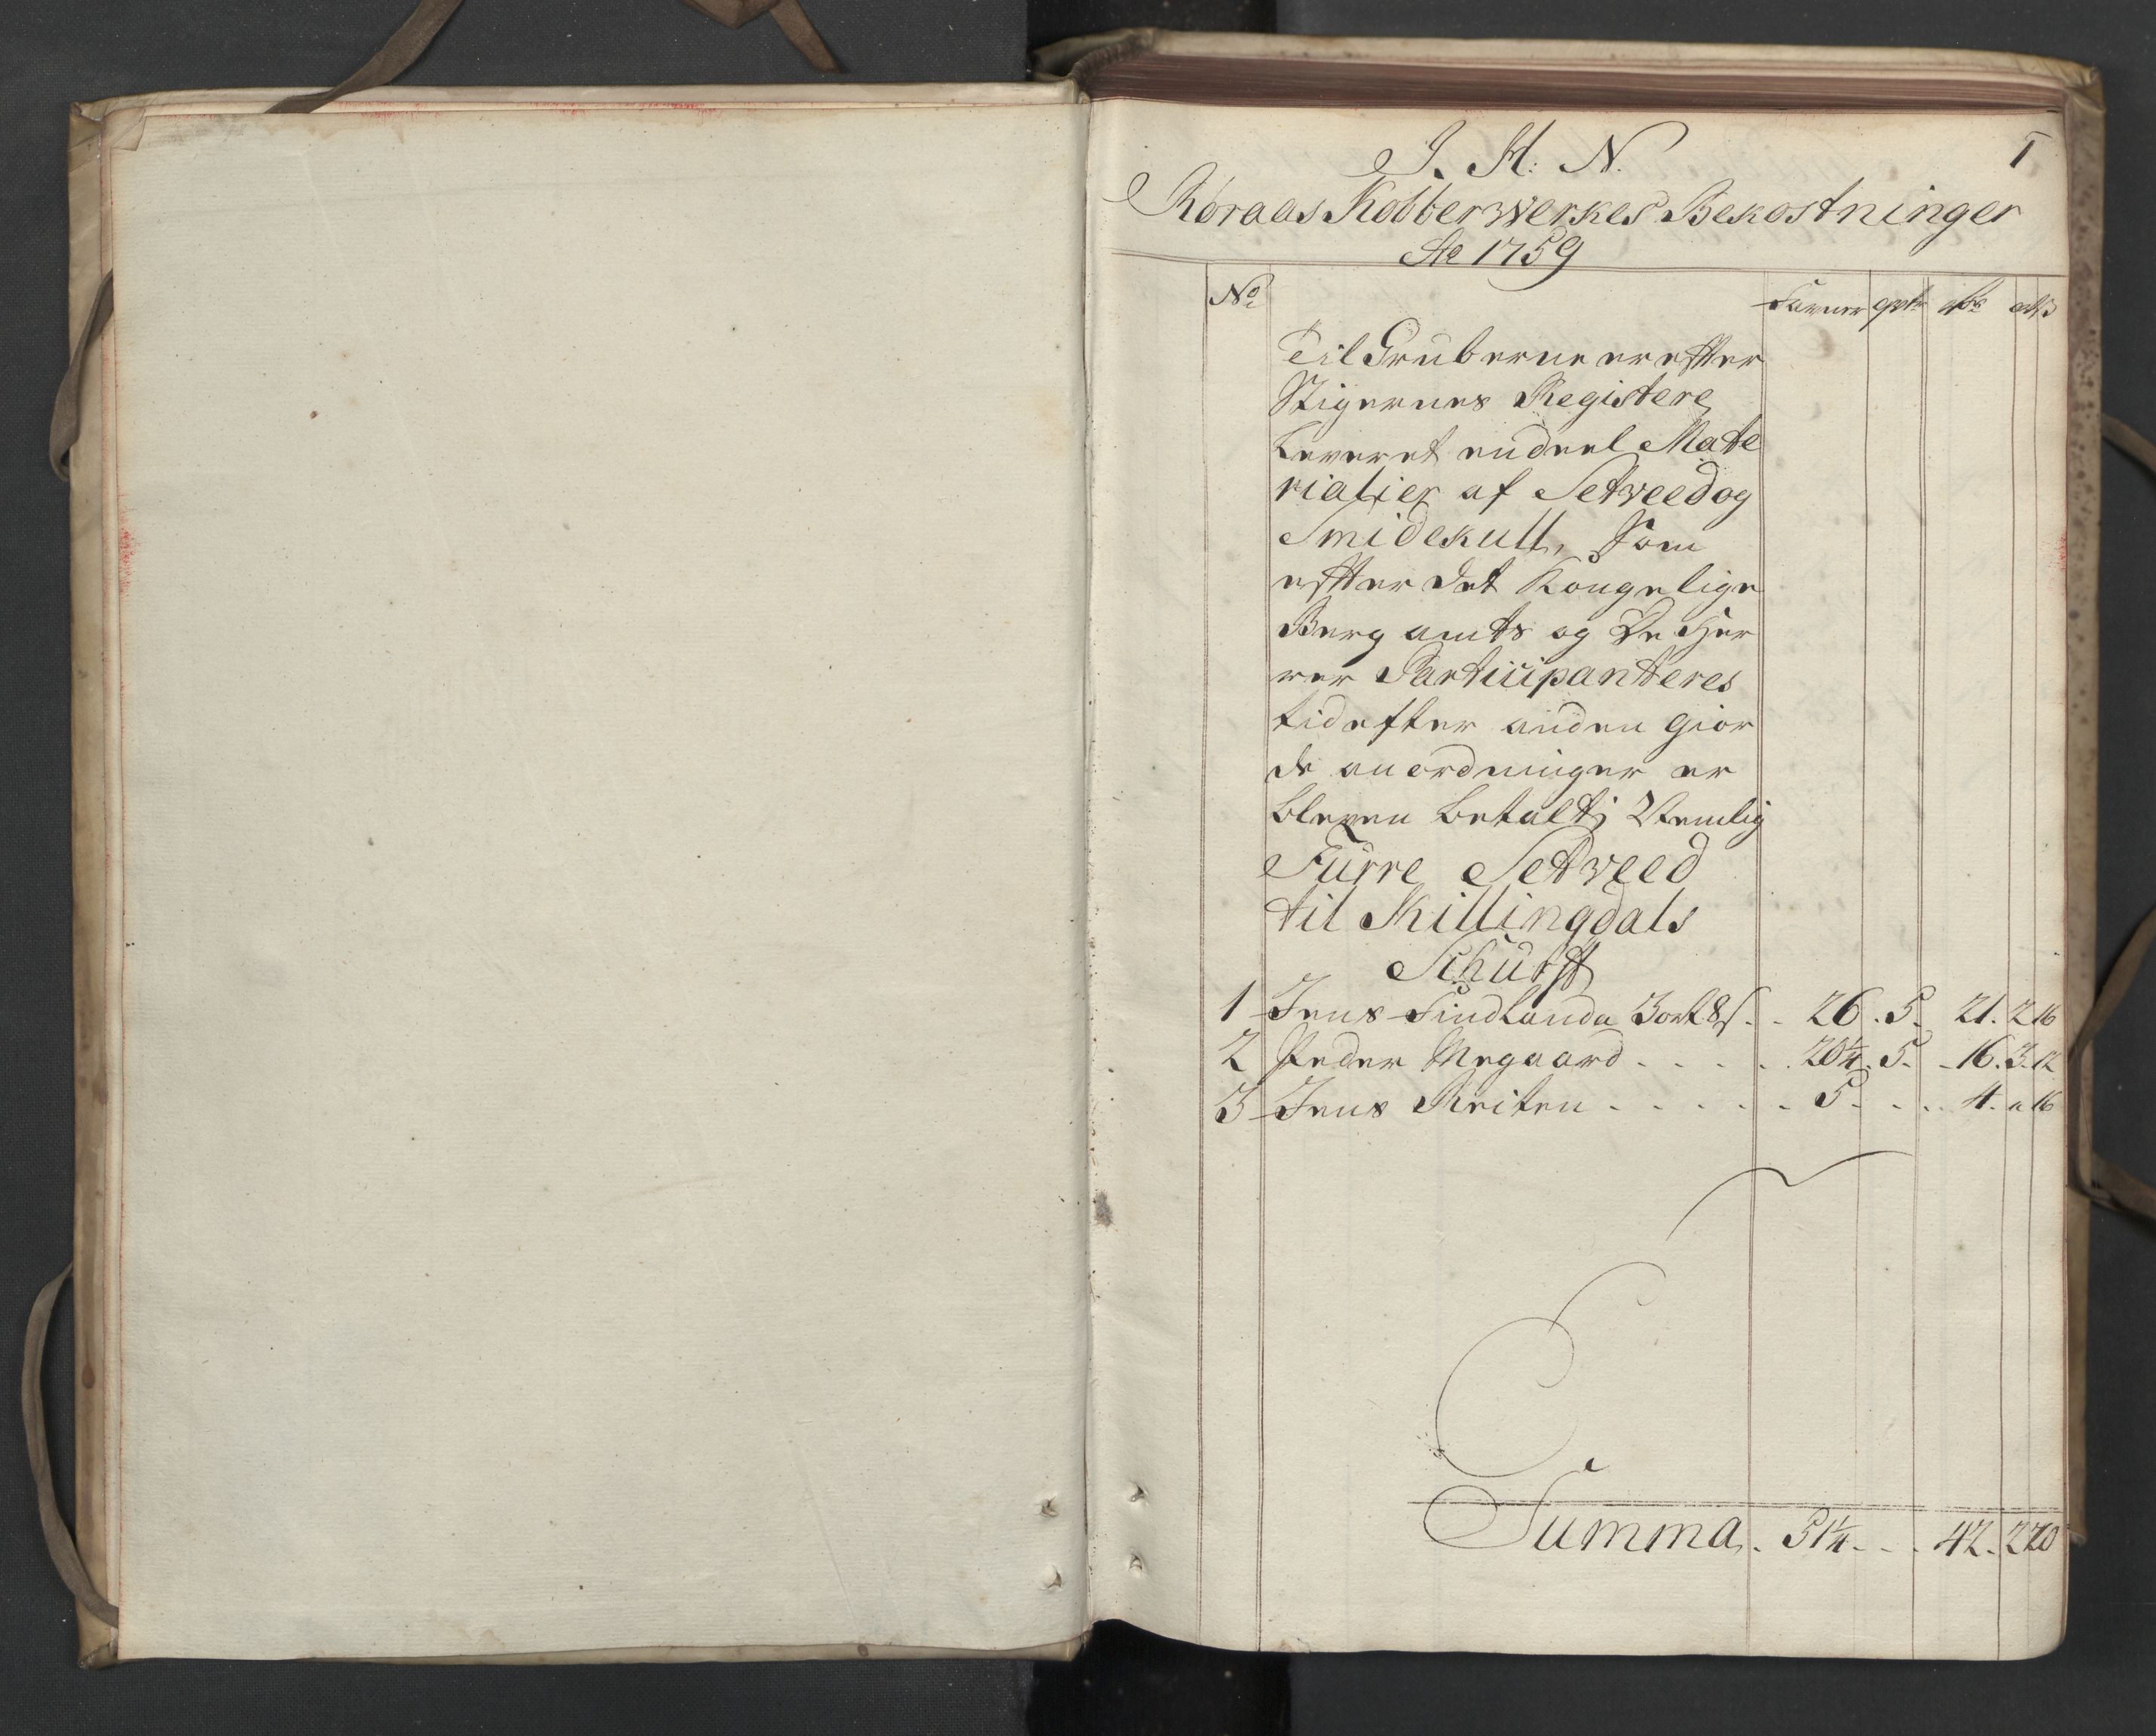 I
J. H: N.
Röraas Kobberwerkes Bekostninger
Ao 1759
No Favner qvtr rdr ort ß
Til Gruberne er efter
Stigernes Registere
Leveret endeel Mate
rialier af Setveed og
Smidekull, som
efter det Kongelige
Berg amts og De Her
rer Participanteres
tid efter anden gior
de anordninger er
bleven betalt; Nemlig
Fürre Setveed
til Killingdals
Schürff
1 Jens Findlandu 3 ort 8 s. . 26 . 5. 21. 2 16
2 Peder Aegaard . . . . . 20¼ . 5. . 16. 3. 12
3 Jens Reiten . . . . . . 5. . . . 4. " 16
Summa . 51¼ . . . 42. 2 20